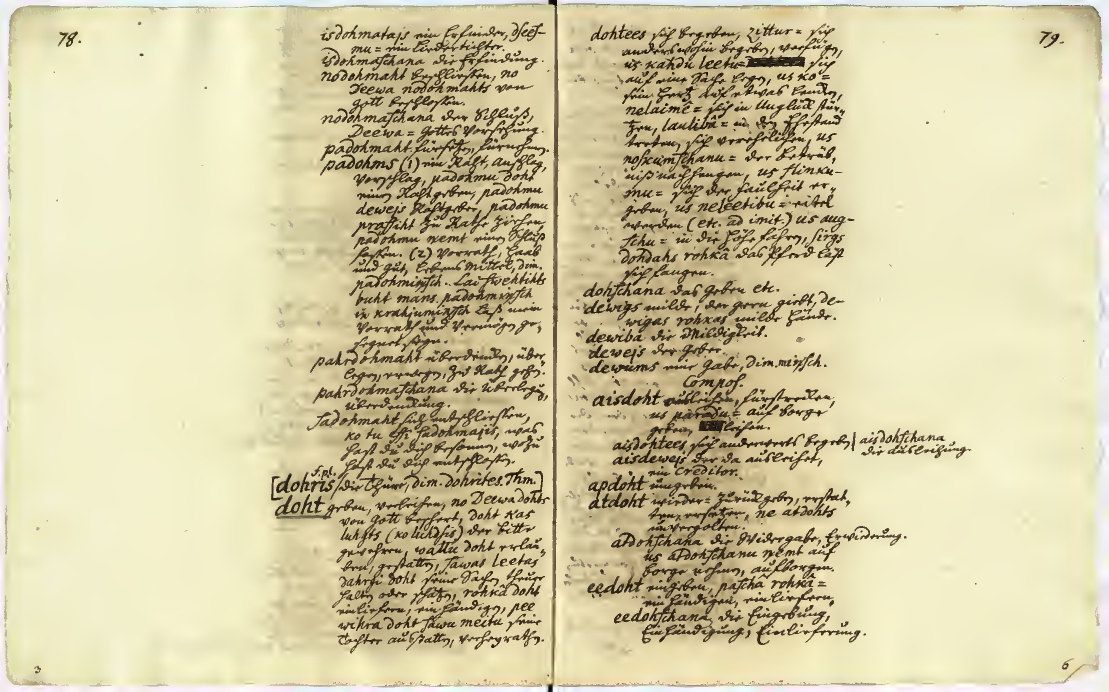 78.
isdohmatajs ein Erfinder, dseef-
mu= ein Liedertichter.
isdohmaschana die Erfindung.
nodohmaht beschliessen, no
Deewa nodohmahts von
Gott beschlossen.
nodohmaschana der Schluß,
Deewa= Gottes Vorsehung.
padohmaht fürsetzen, fürnehmen.
padohms (1) ein Raht, Anschlag,
Vorschlag, padohmu doht
einen Raht geben, padohmu
dewejs Rahtgeber, padohmu
prassiht zu Rathe ziehen,
padohmu nemt einen Schluß
fassen. (2) Vorrath, Haab
und Gut, Lebens Mittel, dim.
padohminsch. Lai swehtihts
buht mans padohminsch
in krahjuminsch laß mein
Vorrath und Vermögen ge-
segnet seyn.
pahrdohmaht überdencken, über-
legen, erwegen, zu Rath gehn.
pahrdohmaschana die Überlegung,
Überdenckung.
sadohmaht sich entschliessen,
ko tu essi sadohmajis, was
hast du dich besonnen, wozu
hast du dich entschlossen.
[dohris s. pl. die Thüre, dim. dohrites. Thm.]
doht geben, verleihen, no Deewa dohts
von Gott beschert, doht kas
luhgts (ko luhdsis) der bitte
gewehren, wallu doht erlau-
ben, gestatten, sawas leetas
dahrgi doht seine Sachen theuer
halten oder schätzen, rohkâ doht
einliefern, einhändigen, pee
wihra doht sawu meitu seine
Tochter ausstatten, verheyrathen.
3
79.
dohtees sich begeben, zittur= sich
anderswohin begeben, verfügen,
us kahdu leetu= sich
auf eine Sache legen, us ko=
sein Hertz auf etwas lencken,
nelaimê= sich in Unglück stür-
tzen, laulibâ= in den Ehestand
treten, sich verehelichen, us
noskumschanu= der Betrüb-
niß nachhengen, us slinku-
mu= sich der Faulheit er-
geben, us neleetibu= eitel
werden (etc. ad imit.) us aug-
schu= in die Höhe fahren, sirgs
dohdahs rohkâ das Pferd läst
sich fangen.
dohschana das Geben etc.
dewigs milde, der gern giebt, de-
wigas rohkas milde Hände.
dewiba die Mildigkeit.
dewejs der Geber.
dewums eine Gabe, dim. minsch.
Compos.
aisdoht ausleihen, fürstrecken,
us paradu= auf borge
geben, leihen.
aisdohtees sich anderwerts begeben | aisdohschana
aisdewejs der da ausleihet, die Ausleihung.
ein Creditor.
apdoht umgeben.
atdoht wieder= zurück geben, erstat-
ten, ersetzen, ne atdohts
unvergolten.
atdohschana die Widergabe, Erwiederung.
us atdohschanu nemt auf
borge nehmen, aufborgen.
eedoht eingeben, paschâ rohkâ=
einhändigen, einliefern,
eedohschana, die Eingebung,
Einhändigung, Einlieferung.
6